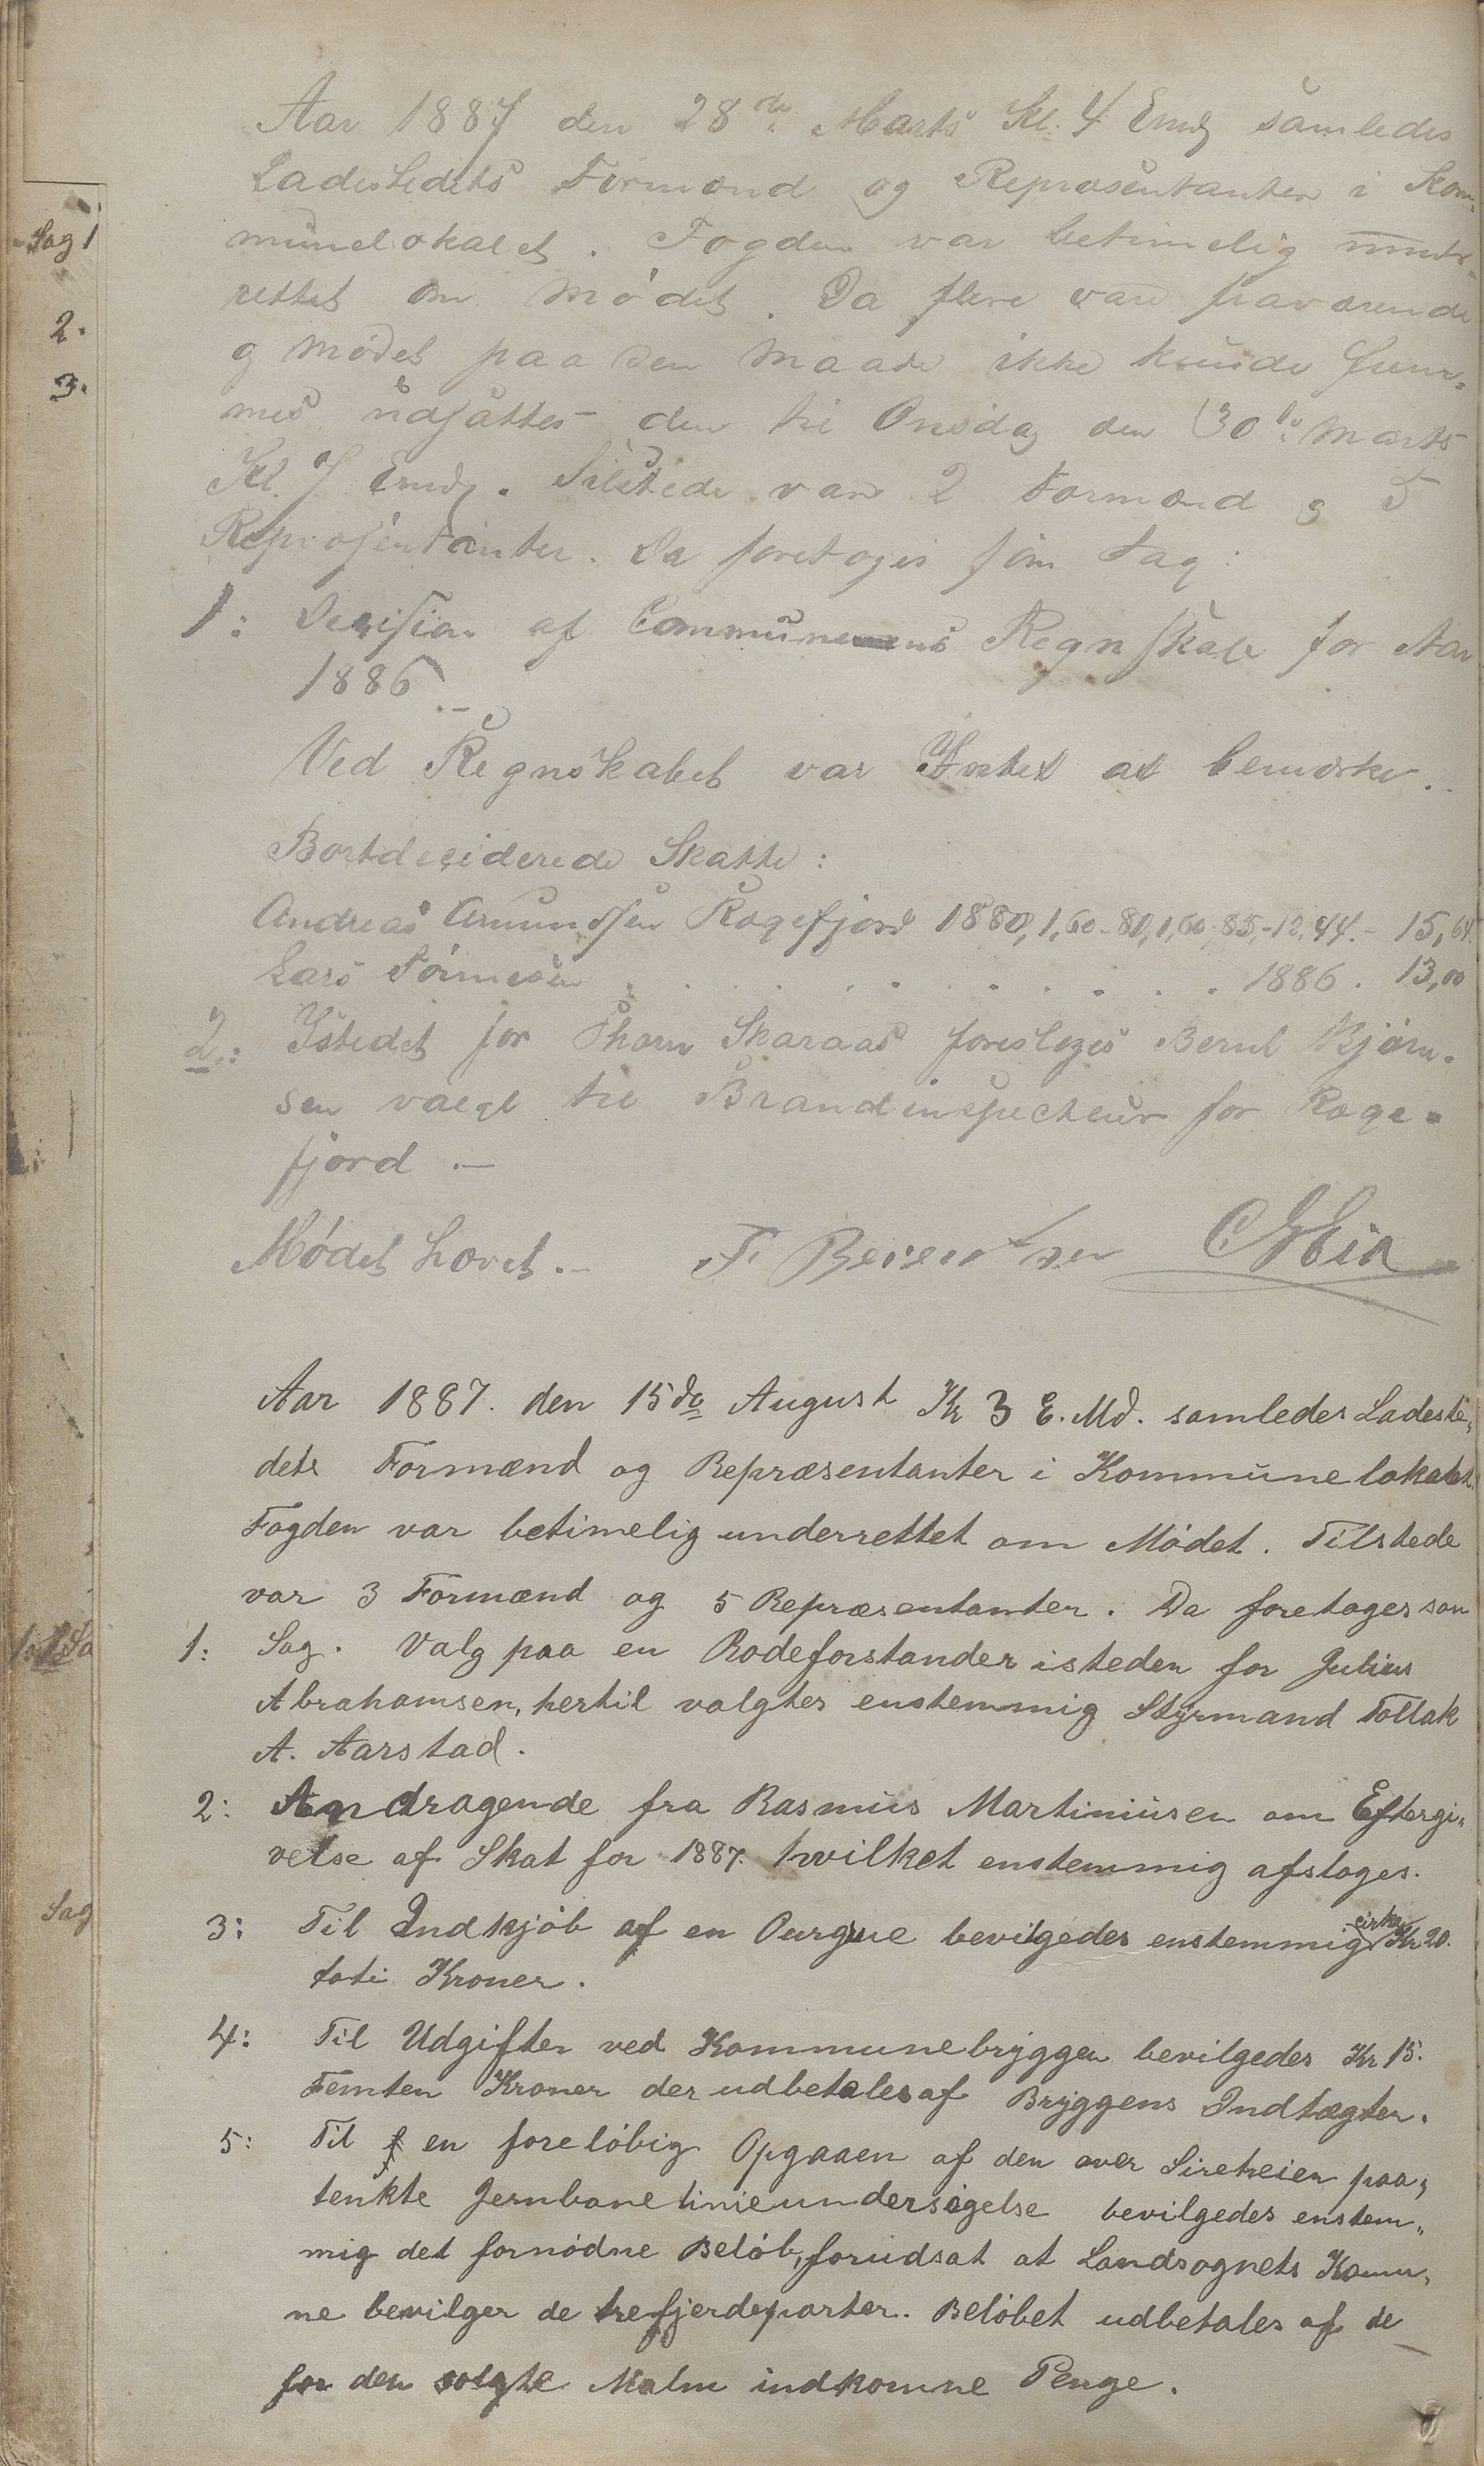 Aar 1887 den 28de Marts Kl. 4 Emdg samledes
Ladestedets Formænd og Repræsentanter i Kom-
munelokalet. Fogden var betimelig undr-
rettet om Mødet. Da flere vare fraværende
og Mødet paa den Maade ikke kunde frem-
mes udsattes den til Onsdag den 30te Marts
Kl. 7 Emdg. Tilstede var 2 Formænd og 5
Repræsentanter. Da foretoges som Sag:
1: Decision af Communens Regnskab for Aar
1886
Ved Regnskabet var Intet at bemærke.
Bortdesiderede Skatte:
Andreas Amundsen Rægefjord 1880, 1,60 - 81, 1,60 85,-12,44.- 15,64
Lars Tønnesen . . . . . . . . . . 1886. 13,00
2: Istedet for Thorn Skaraas foresloges Bernt Bjørn-
sen valgt til Brandinspecteur for Ræge-
fjord .-
Mødet hævet.- F. Berentsen
Aar 1887. den 15de August Kl 3 E. Md. samledes Ladeste-
dets Formænd og Repræsentanter i Kommunelokalet.
Fogden var betimelig underrettet om Mødet. Tilstede
var 3 Formænd og 5 Repræsentanter. Da foretages som
1: Sag. Valg paa en Rodeforstander isteden for Julius
Abrahamsen, hertil valgtes enstemmig Styrmand Tollak
A. Aarstad.
2: Andragende fra Rasmus Martiniusen om Eftergi-
velse af Skat for 1887. hvilket enstemmig afsloges.
3: Til Indkjøb af en bevilgedes enstemmig cirka Kr 20.
Kroner.
4: Til Udgifter ved Kommunebryggen bevilgedes Kr 15.
Femten Kroner der udbetales af Bryggens Indtægter.
5: Til en foreløbig Opgaaen af den over Sireheien paa-
tenkte Jernbanelinieundersøgelse bevilgedes enstem-
mig det fornødne Beløb, forudsat at Landsognets Kommu-
ne bevilger de trefjerdeparter. Beløbet udbetales af de
for den solgte Malm indkomne Penge.
Sag 1
2.
3.
Sag